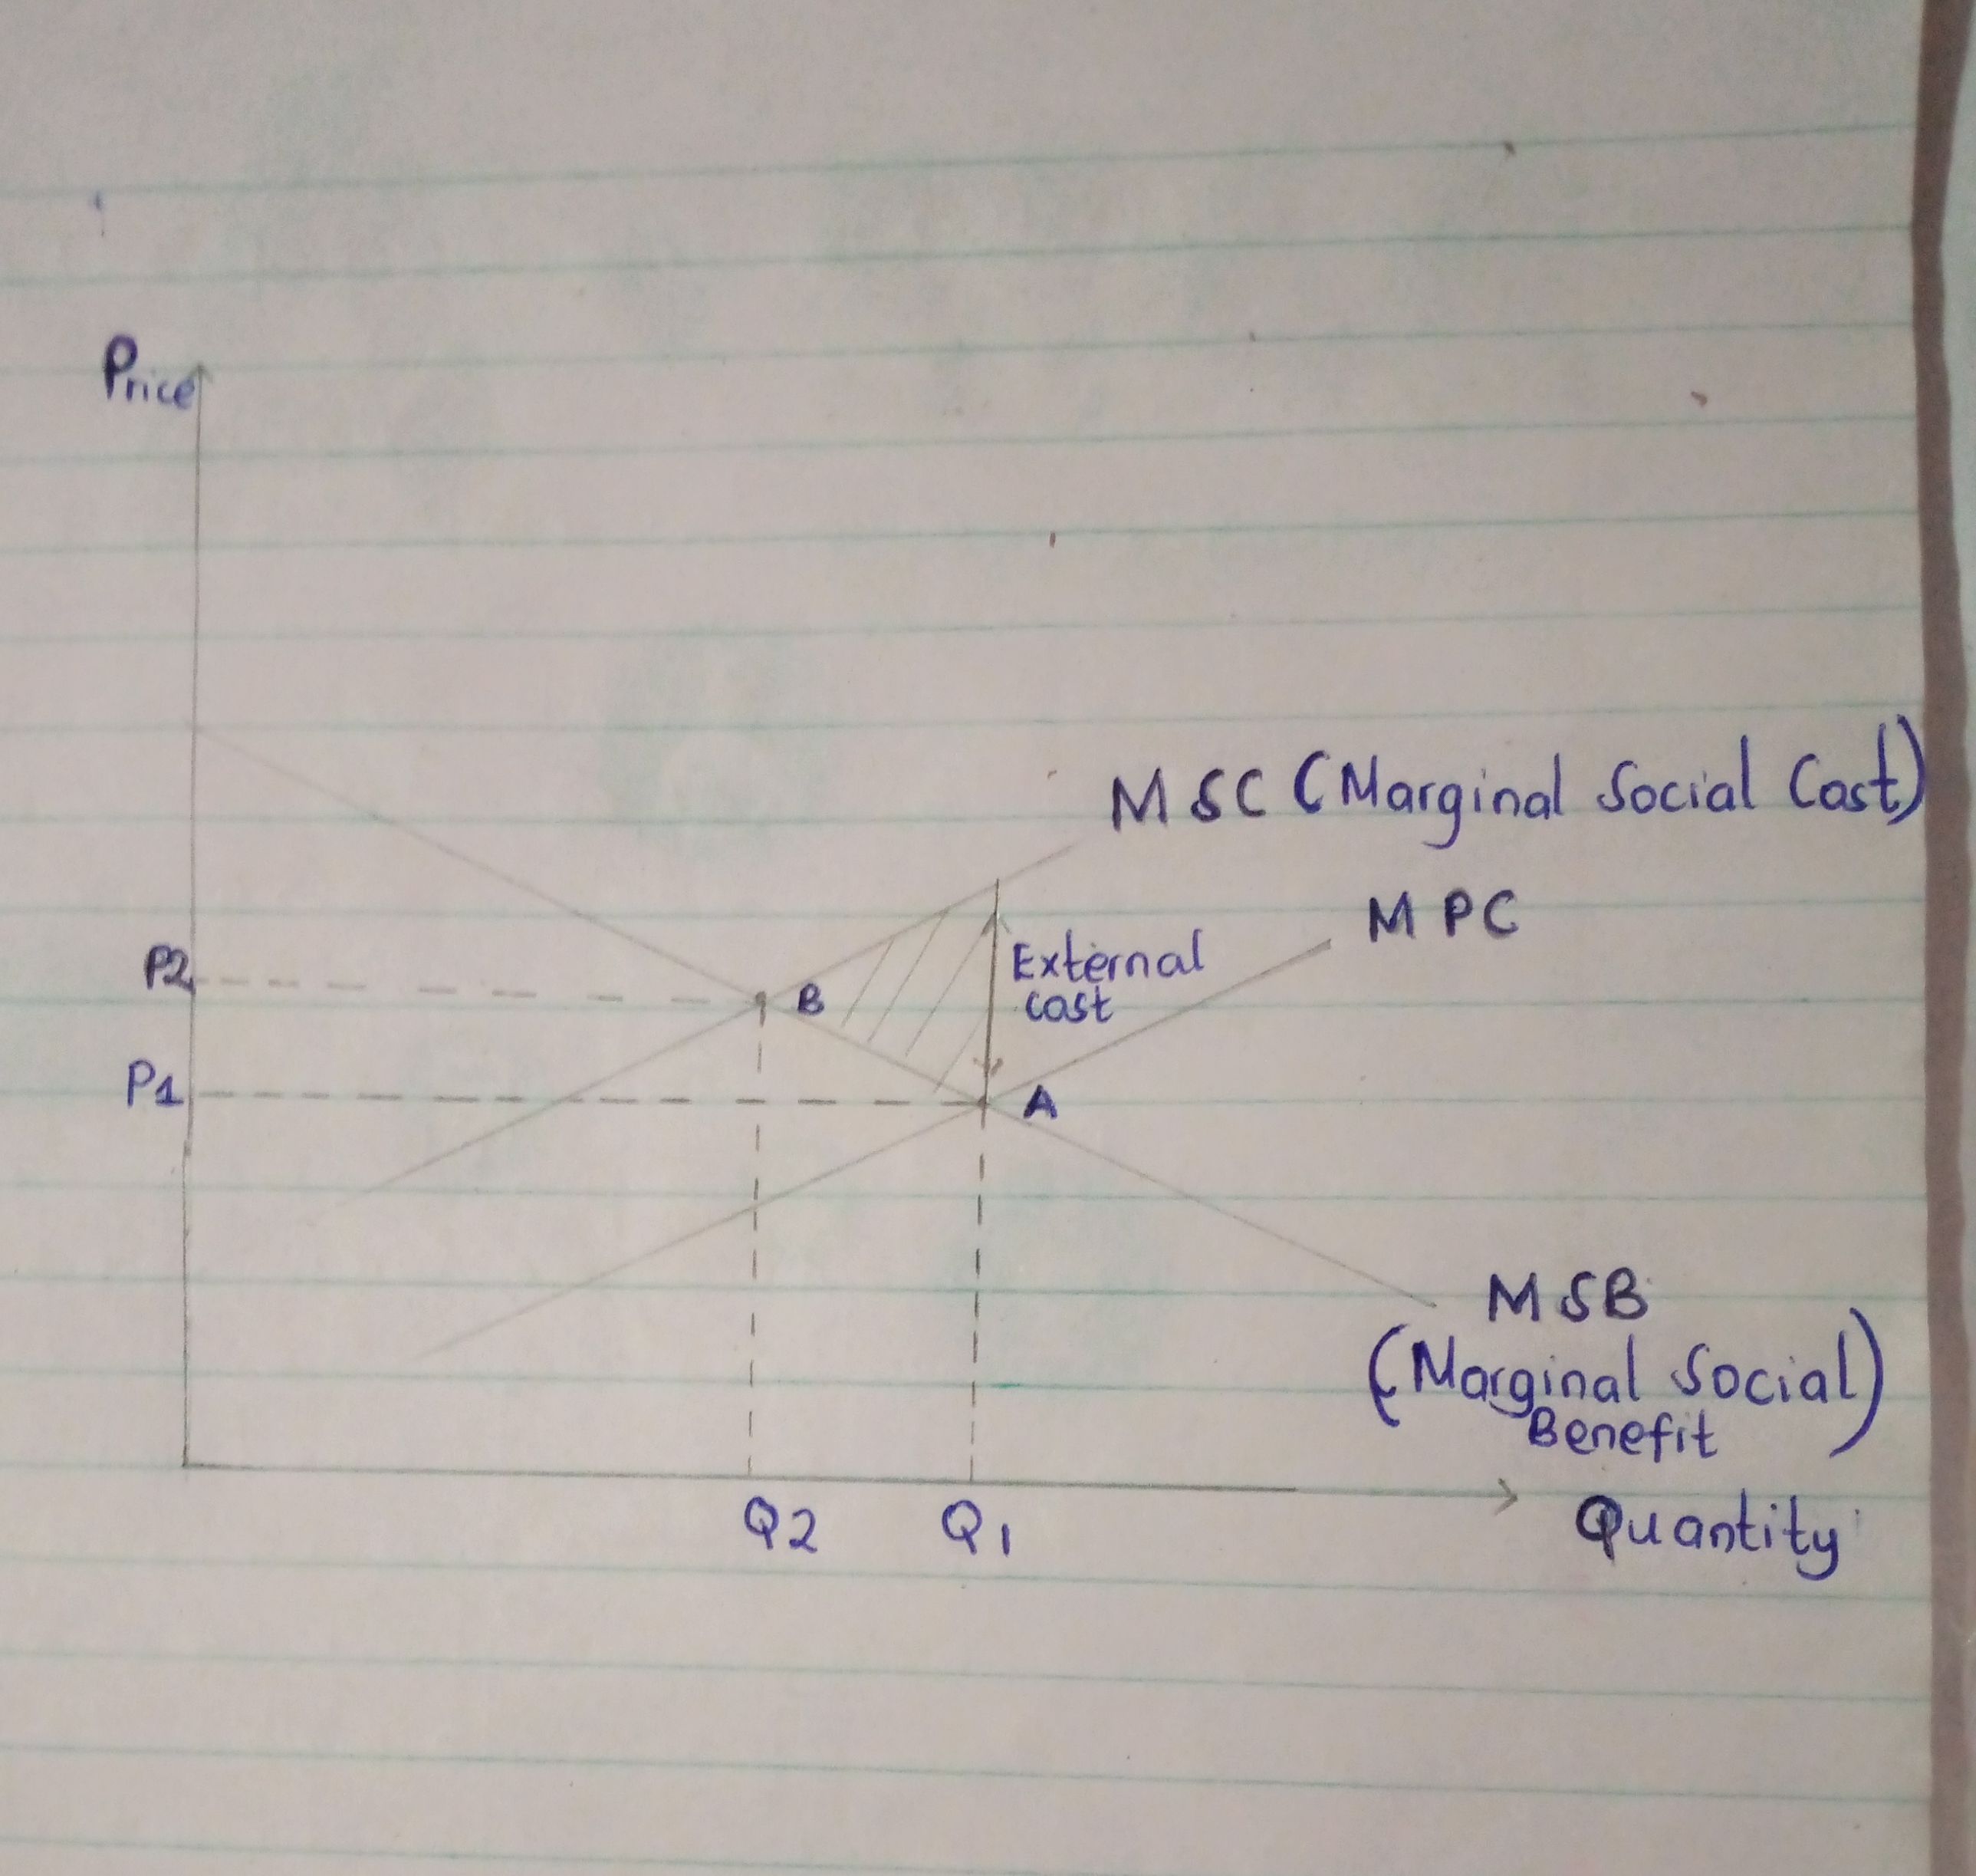 Price
MSC (Marginal Social Cost)
MPC
External
cost
P2
B
P1
A
MSB
(Marginal Social)
Benefit
Q2 Q1
Quantity